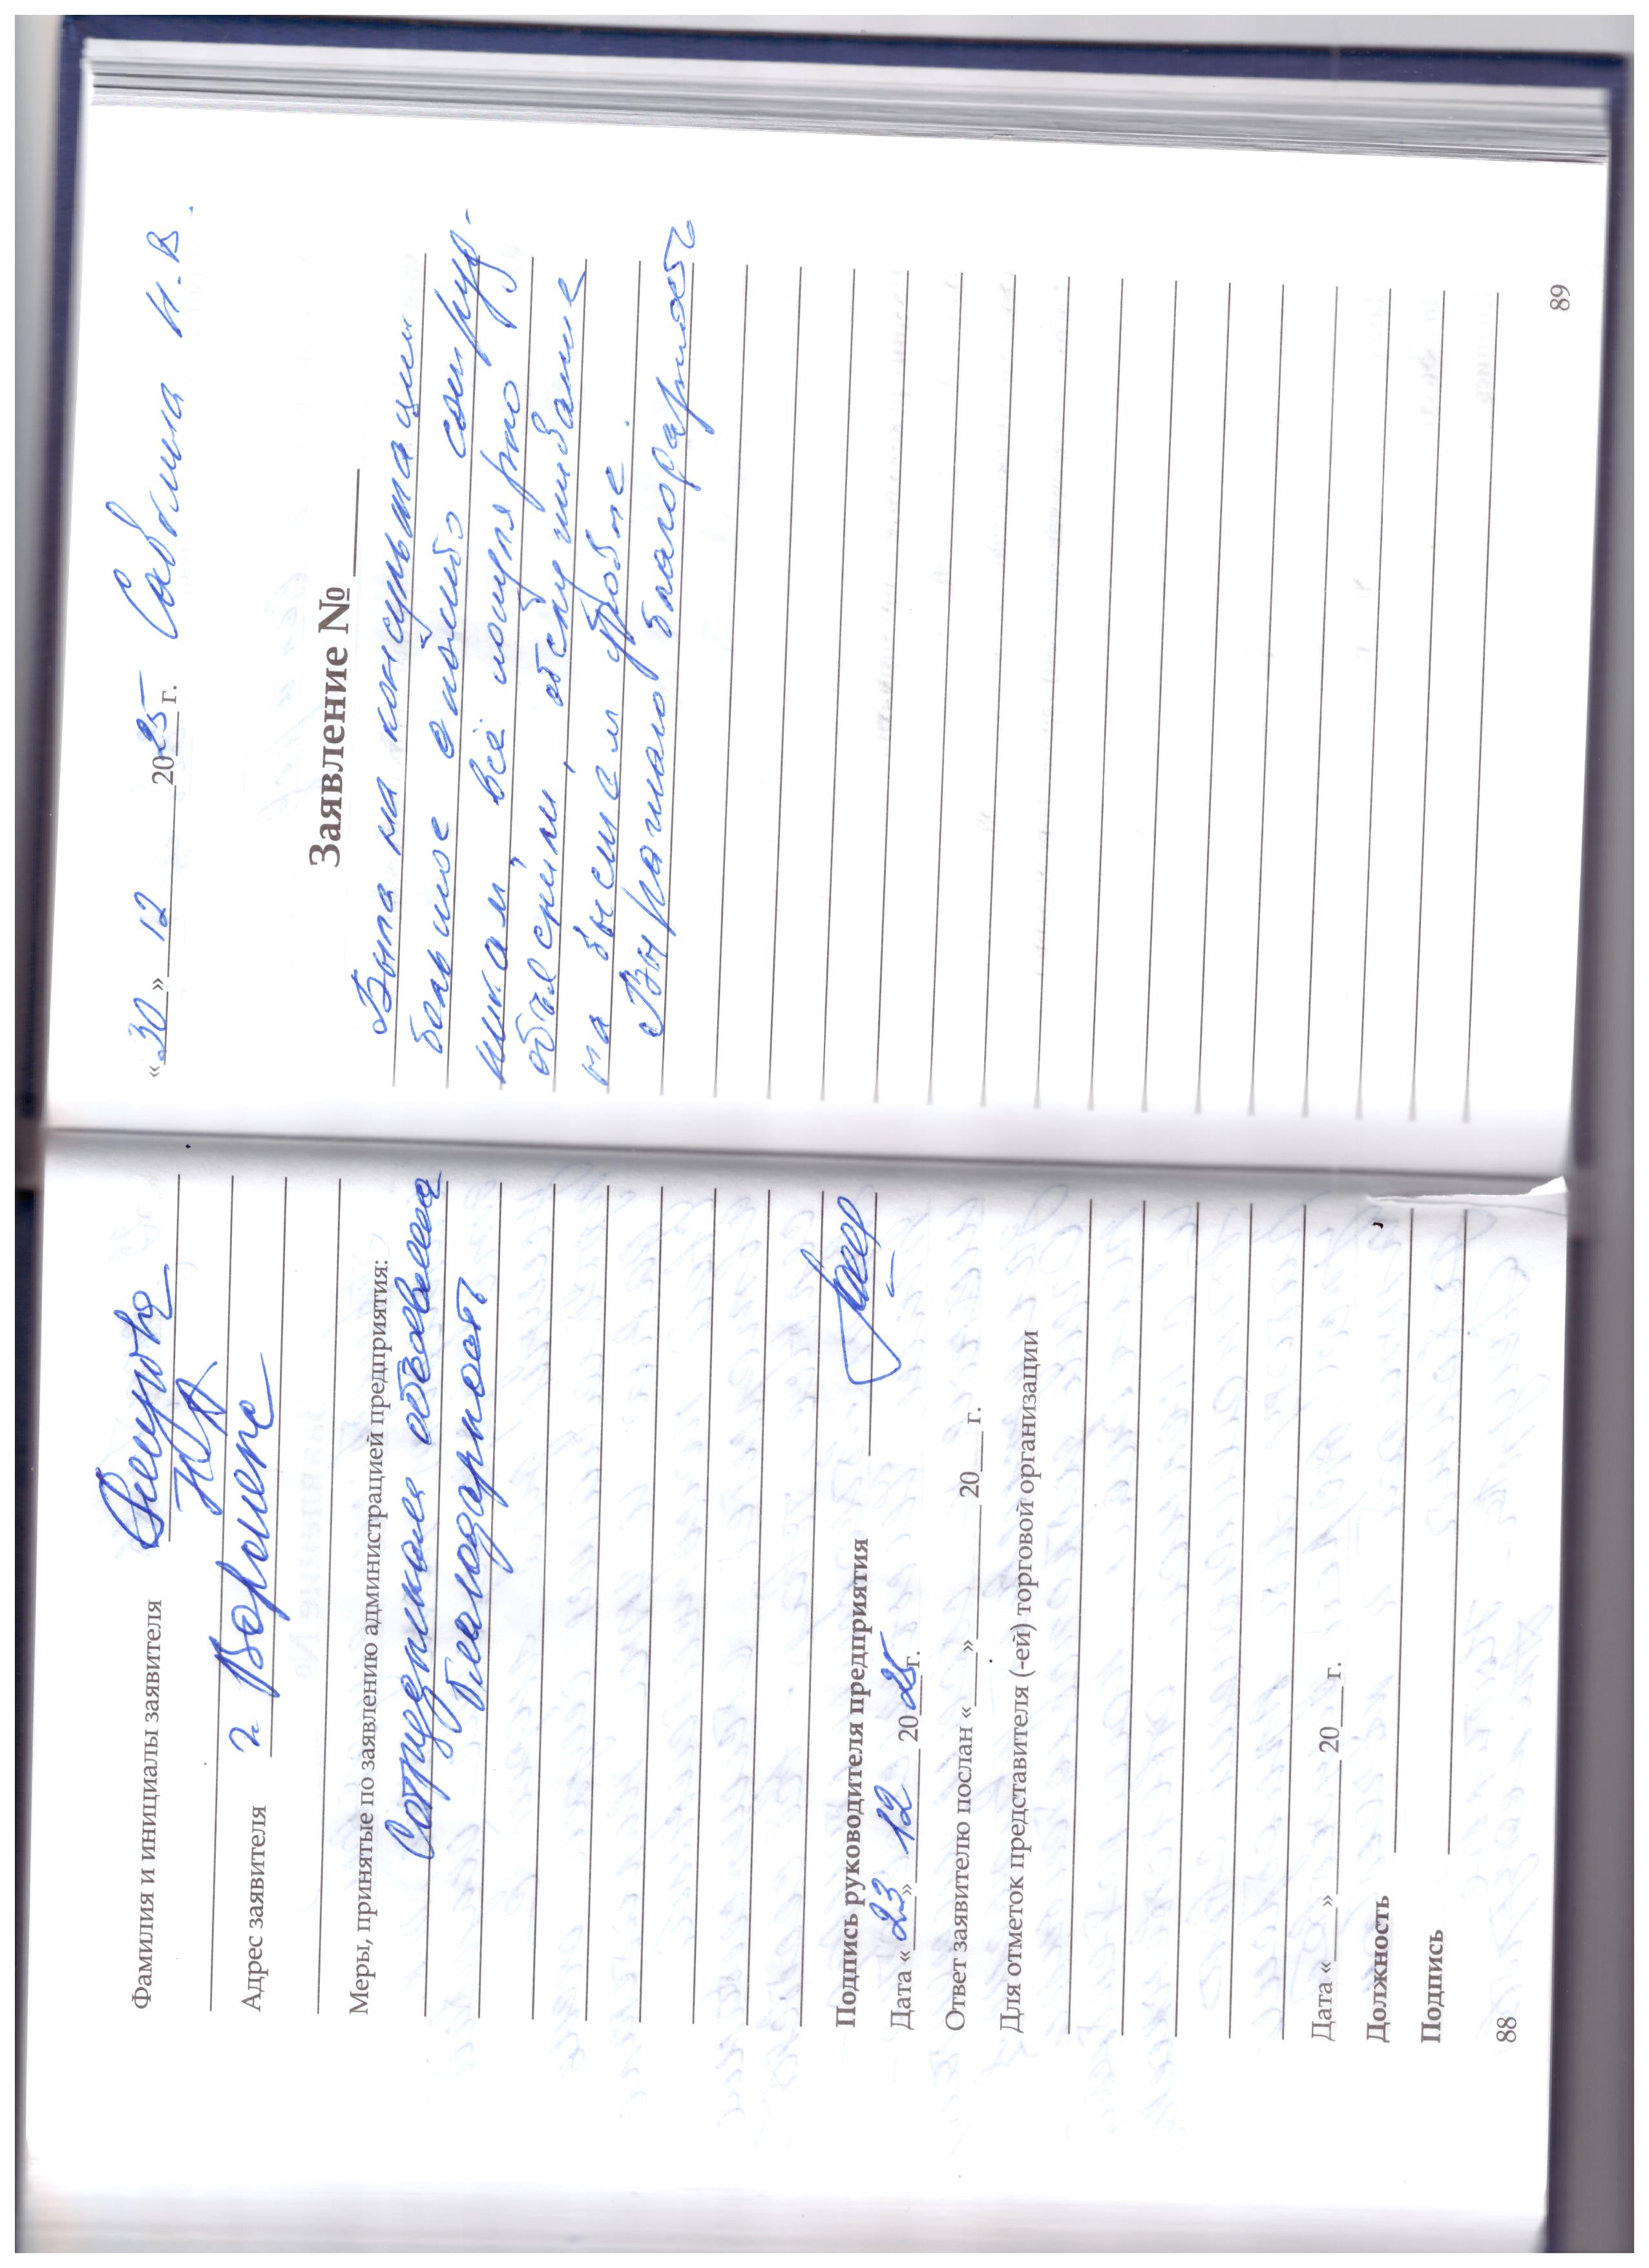 Фамилия и инициалы заявителя
Н А
Адрес заявителя г. Воронеж
Меры, принятые по заявлению администрацией предприятия:
Сотрудникам объявлена
благодарность
Подпись руководителя предприятия
Дата «23» 12 2025 г.
Ответ заявителю послан «___»________ 20___г.
Для отметок представителя (-ей) торговой организации
Дата «___»________ 20___г.
Должность
Подпись
88
«30» 12 2025 г. Савкина Н.В.
Заявление № ______
Была на консультации
большое спасибо сотруд-
никам, всё популярно
объяснили, обслуживание
на высшем уровне.
Выражаю благодарность
89